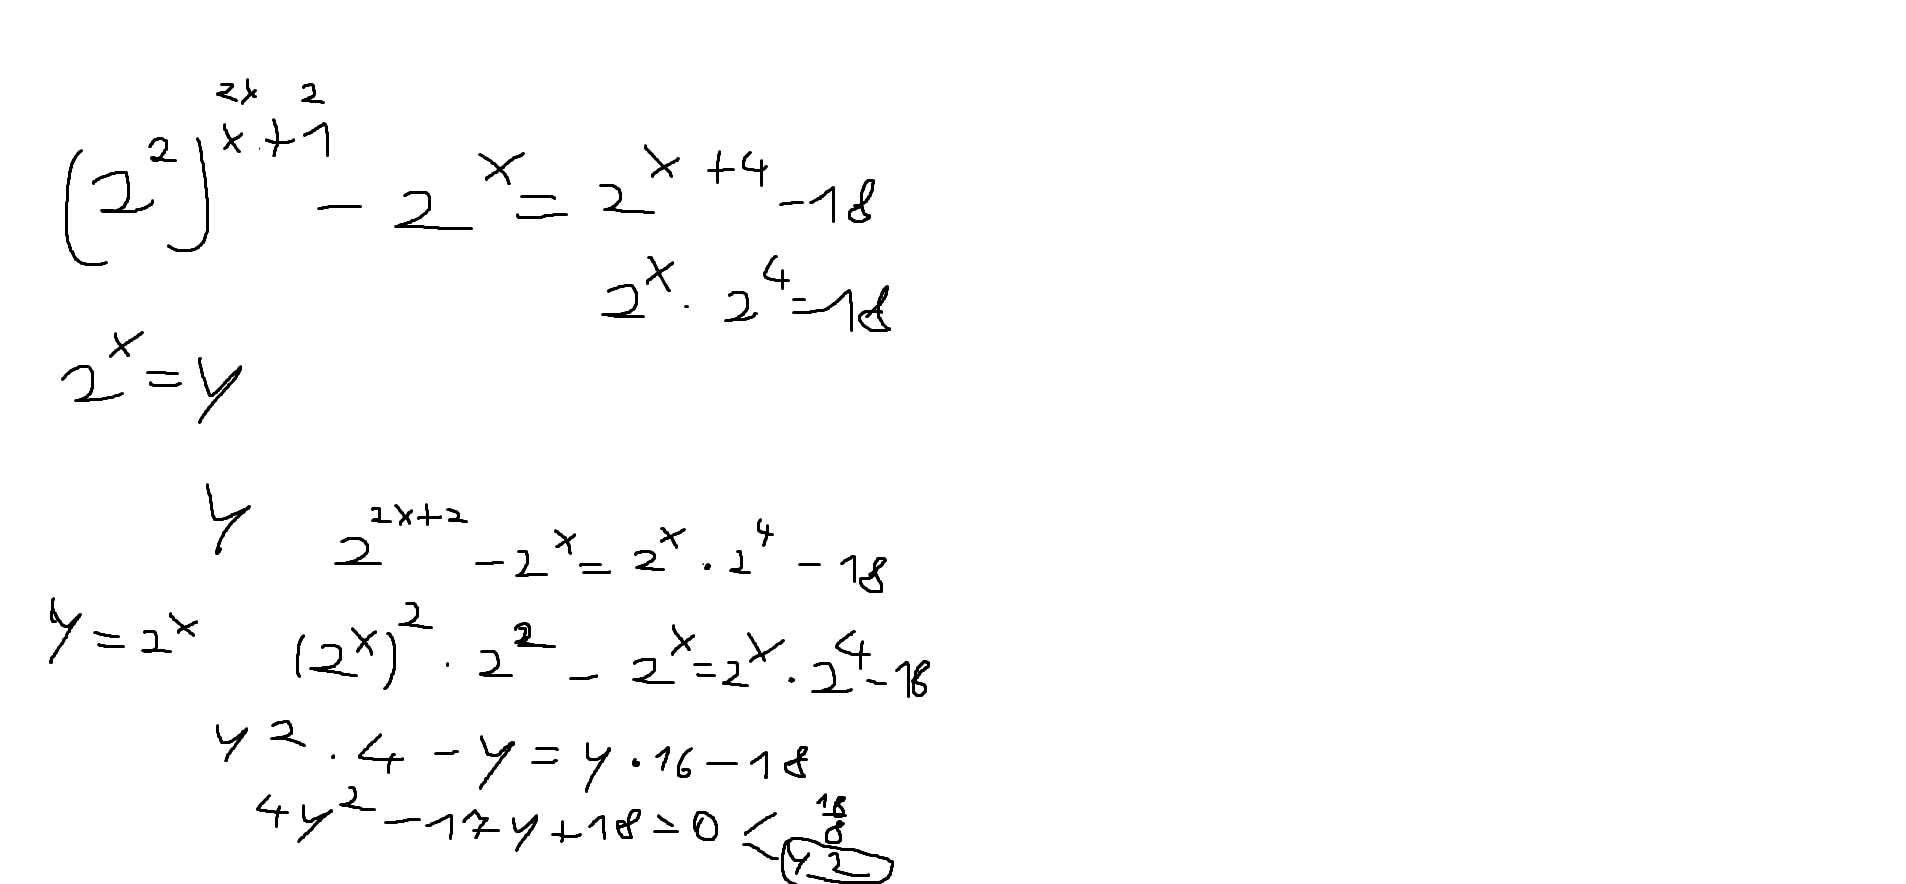 2x 2
(2^2)^{x+1} - 2^x = 2^{x+4} - 18
2^x · 2^4 = 18
2^x = y
y 2^{2x+2} - 2^x = 2^x · 2^4 - 18
y = 2^x (2^x)^2 · 2^2 - 2^x = 2^x · 2^4 - 18
y^2 · 4 - y = y · 16 - 18
4y^2 - 17y + 18 = 0 < 18/8
y 2